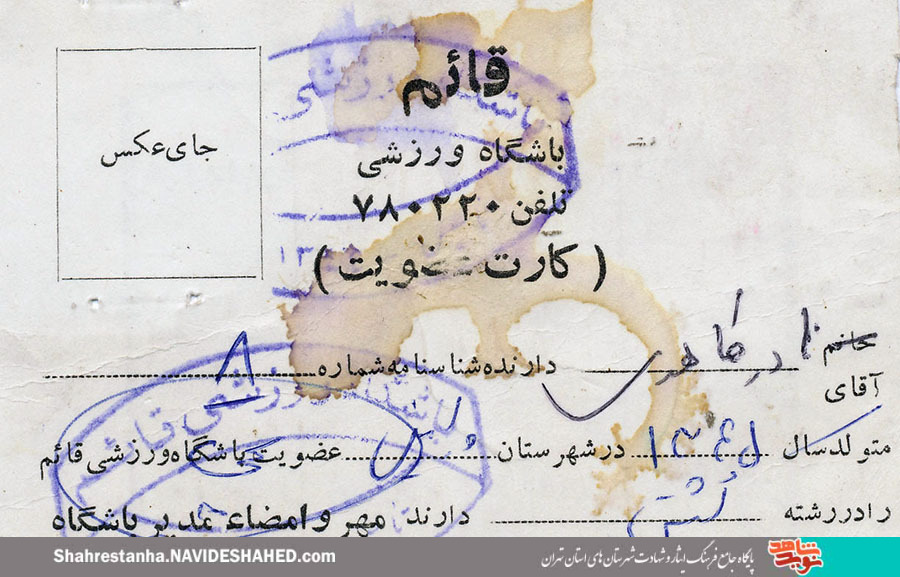 قائم
باشگاه ورزشی
تلفن ۷۸۰۲۲۰
( کارت عضویت )
جای عکس
خانم نادر
آقای
دارنده شناسنامه شماره ۸
متولد سال ۱۳۴۱ در شهرستان عضویت باشگاه ورزشی قائم
را در رشته دارند مهر و امضاء مدیر باشگاه
باشگاه ورزشی قائم
Shahrestanha.NAVIDESHAHED.com
پایگاه جامع فرهنگ ایثار و شهادت شهرستان های استان تهران
نوید شاهد